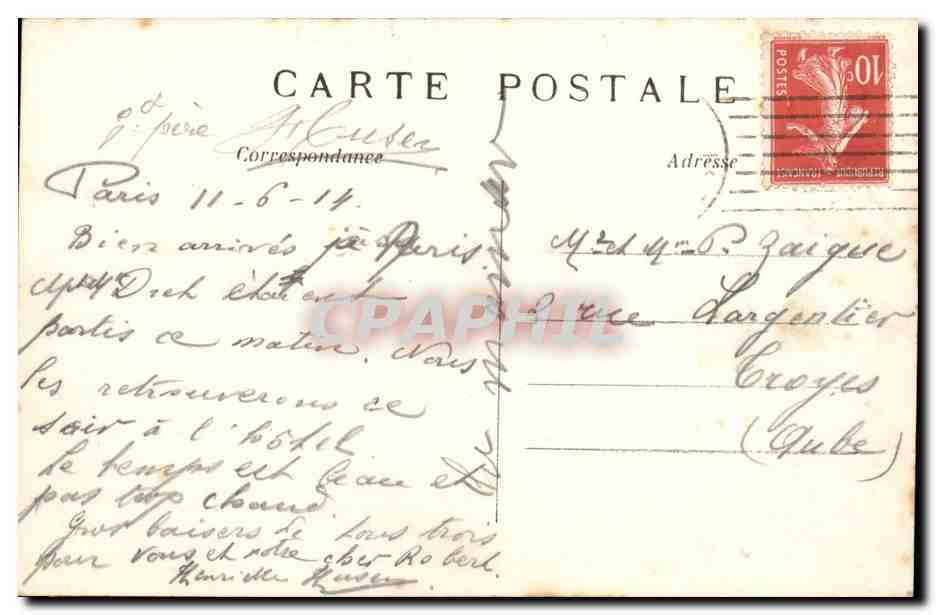 CARTE POSTALE
10c
POSTES
REPUBLIQUE FRANÇAISE
gd père Husen
Correspondance
Adresse
Paris 11-6-14.
Bien arrivés Paris.
étaient
partis ce matin. Nous
les retrouverons ce
soir à l'hôtel
Le temps est beau et
pas trop chaud
Gros baisers de tous trois
pour vous et notre cher Robert.
Henriette Husen
Mr et Mme P. Zaigue
2 rue Largentier
Troyes
(Aube)
CPAPHIL